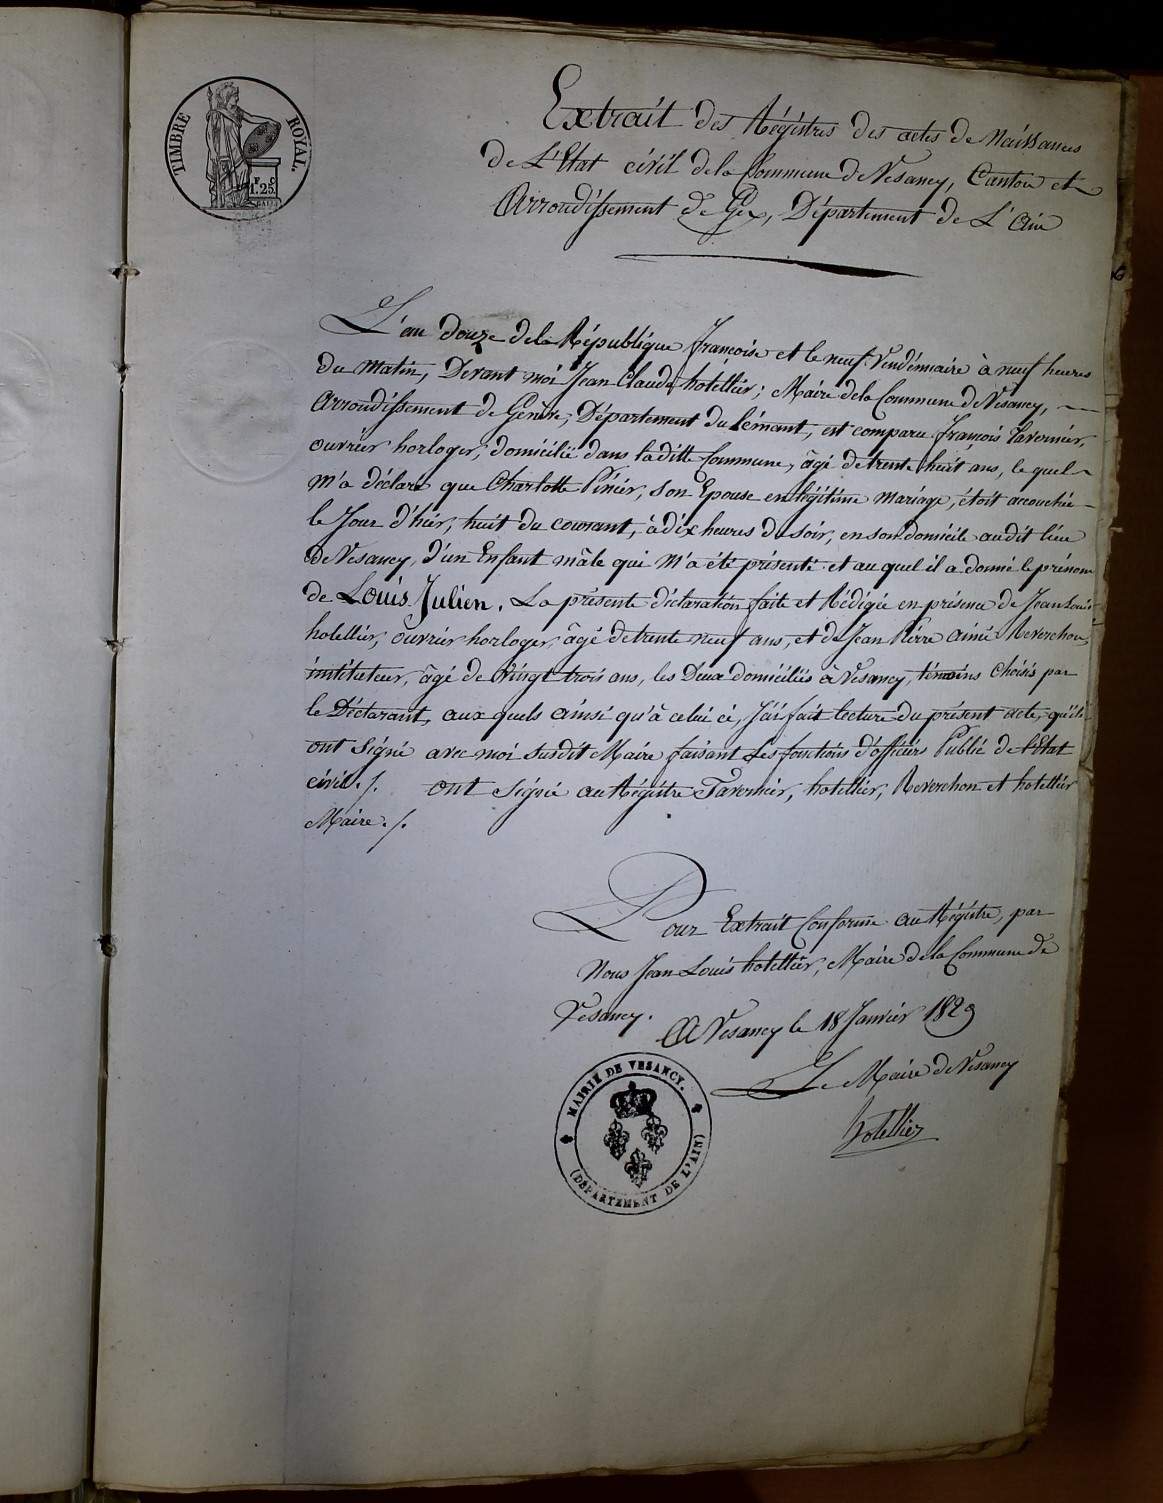 TIMBRE ROYAL.
1.F 25.C
Extrait des Régistres des actes de Naissances
de L'Etat civil de la Commune de Vesancy, Canton et
Arrondissement de Gex, Département de L'Ain
L'an douze de la République françoise et le neuf Vendémiaire à neuf heures
du matin, Devant moi Jean Claude hotellier; Maire de la Commune de Vesancy,
Arrondissement de Genève, Département du Lémant, est comparu françois Tavernier,
ouvrier horloger, domicilié dans la ditte Commune, âgé de trente huit ans, le quel
m'a déclaré que Charlotte Périer, son Epouse en légitime mariage, étoit accouchée
le Jour d'hier, huit du courant, à dix heures du soir, en son domicile audit lieu
de Vesancy, d'un Enfant mâle qui m'a été présenté et au quel il a donné le prénom
de Louis Julien. La présente déclaration faite et Rédigée en présence de Jean Louis
hotellier, ouvrier horloger, âgé de trente neuf ans, et de Jean Pierre aimé Reverchon,
instituteur, âgé de vingt trois ans, les Deux domiciliés à Vesancy, témoins choisis par
le Déclarant, aux quels ainsi qu'à celui ci, J'ai fait lecture du présent acte, qu'ils
ont Signé avec moi susdit Maire faisant les fonctions d'officier Public de l'Etat
civil./. ont signé au Régistre Tavernier, hotellier, Reverchon et hotellier
Maire./.
Pour Extrait Conforme au Régistre, par
Nous Jean Louis hotellier, Maire de la Commune de
Vesancy. A Vesancy le 18 Janvier 1829
Le Maire de Vesancy
hotellier
MAIRIE DE VESANCY.
(DÉPARTEMENT DE L'AIN)